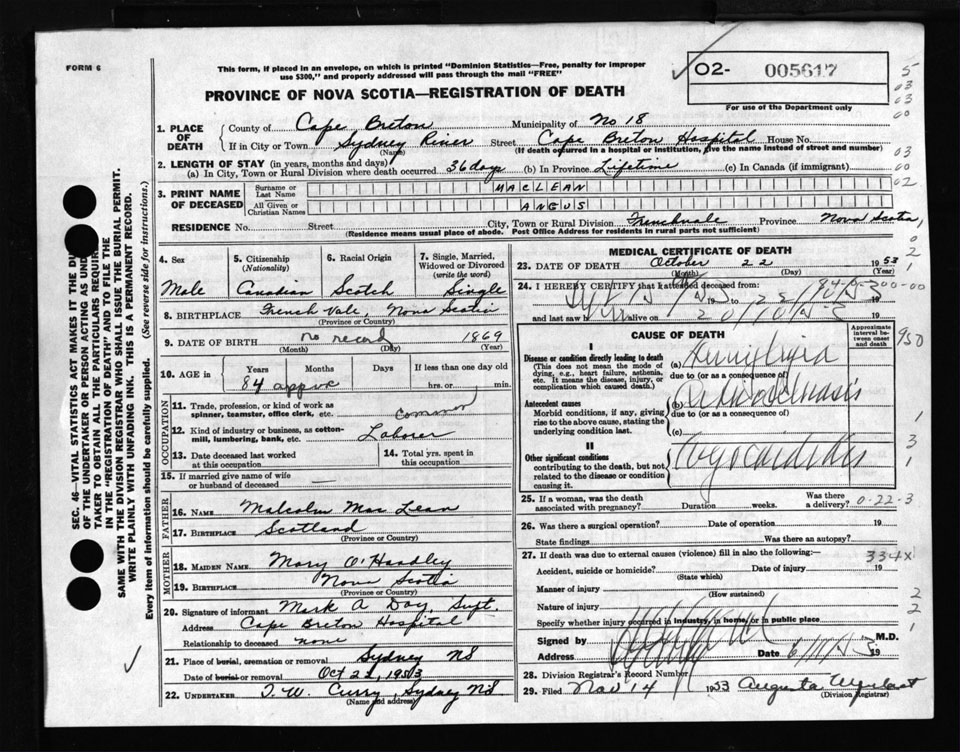 FORM 6
This form, if placed in an envelope, on which is printed "Dominion Statistics—Free, penalty for improper
use $300," and properly addressed will pass through the mail "FREE"
02- 005617
For use of the Department only
PROVINCE OF NOVA SCOTIA—REGISTRATION OF DEATH
1. PLACE OF DEATH
County of Cape Breton Municipality of No 18
If in City or Town Sydney River Street Cape Breton Hospital House No.
(Name) (If death occurred in a hospital or institution, give the name instead of street and number)
2. LENGTH OF STAY (in years, months and days)
(a) In City, Town or Rural Division where death occurred 36 days (b) In Province Lifetime (c) In Canada (if immigrant)
3. PRINT NAME OF DECEASED
Surname or Last Name MACLEAN
All Given or Christian Names ANGUS
RESIDENCE No. Street City, Town or Rural Division Frenchvale Province Nova Scotia
(Residence means usual place of abode. Post Office Address for residents in rural parts not sufficient)
4. Sex Male
5. Citizenship (Nationality) Canadian
6. Racial Origin Scotch
7. Single, Married, Widowed or Divorced (write the word) Single
8. BIRTHPLACE French Vale, Nova Scotia
(Province or Country)
9. DATE OF BIRTH no record 1869
(Month) (Day) (Year)
10. AGE in Years Months Days If less than one day old
84 approx hrs. or min.
OCCUPATION
11. Trade, profession, or kind of work as spinner, teamster, office clerk, etc. Common
12. Kind of industry or business, as cotton-mill, lumbering, bank, etc. Laborer
13. Date deceased last worked at this occupation
14. Total yrs. spent in this occupation
15. If married give name of wife or husband of deceased
FATHER
16. Name Malcolm Mac Lean
17. Birthplace Scotland
(Province or Country)
MOTHER
18. Maiden Name Mary O'Handley
19. Birthplace Nova Scotia
(Province or Country)
20. Signature of informant Mark A Day, Supt.
Address Cape Breton Hospital
Relationship to deceased none
21. Place of burial, cremation or removal Sydney NS
Date of burial or removal Oct 1953
22. Undertaker Curry, Sydney NS
(Name and address)
MEDICAL CERTIFICATE OF DEATH
23. DATE OF DEATH October 22 1953
(Month) (Day) (Year)
24. I HEREBY CERTIFY that I attended deceased from:
19 to 19
and last saw h alive on 19
CAUSE OF DEATH
Approximate interval between onset and death
I
Disease or condition directly leading to death
(This does not mean the mode of dying, e.g., heart failure, asthenia, etc. It means the disease, injury, or complication which caused death.)
(a)
due to (or as a consequence of)
Antecedent causes
Morbid conditions, if any, giving rise to the above cause, stating the underlying condition last.
(b)
due to (or as a consequence of)
(c)
II
Other significant conditions
contributing to the death, but not related to the disease or condition causing it.
Myocarditis
950
25. If a woman, was the death associated with pregnancy? Duration weeks. Was there a delivery? 0-22-3
26. Was there a surgical operation? Date of operation 19
State findings Was there an autopsy?
27. If death was due to external causes (violence) fill in also the following:— 334x
Accident, suicide or homicide? Date of injury 19
(State which)
Manner of injury
(How sustained)
Nature of injury
Specify whether injury occurred in industry, in home, or in public place
Signed by M.D.
Address Date 19
28. Division Registrar's Record Number
29. Filed Nov 14 1953 Augusta
(Division Registrar)
SEC. 46—VITAL STATISTICS ACT MAKES IT THE
OF THE UNDERTAKER OR PERSON ACTING AS
TAKER TO OBTAIN ALL THE PARTICULARS
IN THE "REGISTRATION OF DEATH" AND TO FILE THE
SAME WITH THE DIVISION REGISTRAR WHO SHALL ISSUE THE BURIAL PERMIT.
WRITE PLAINLY WITH UNFADING INK. THIS IS A PERMANENT RECORD.
Every item of information should be carefully supplied. (See reverse side for instructions.)